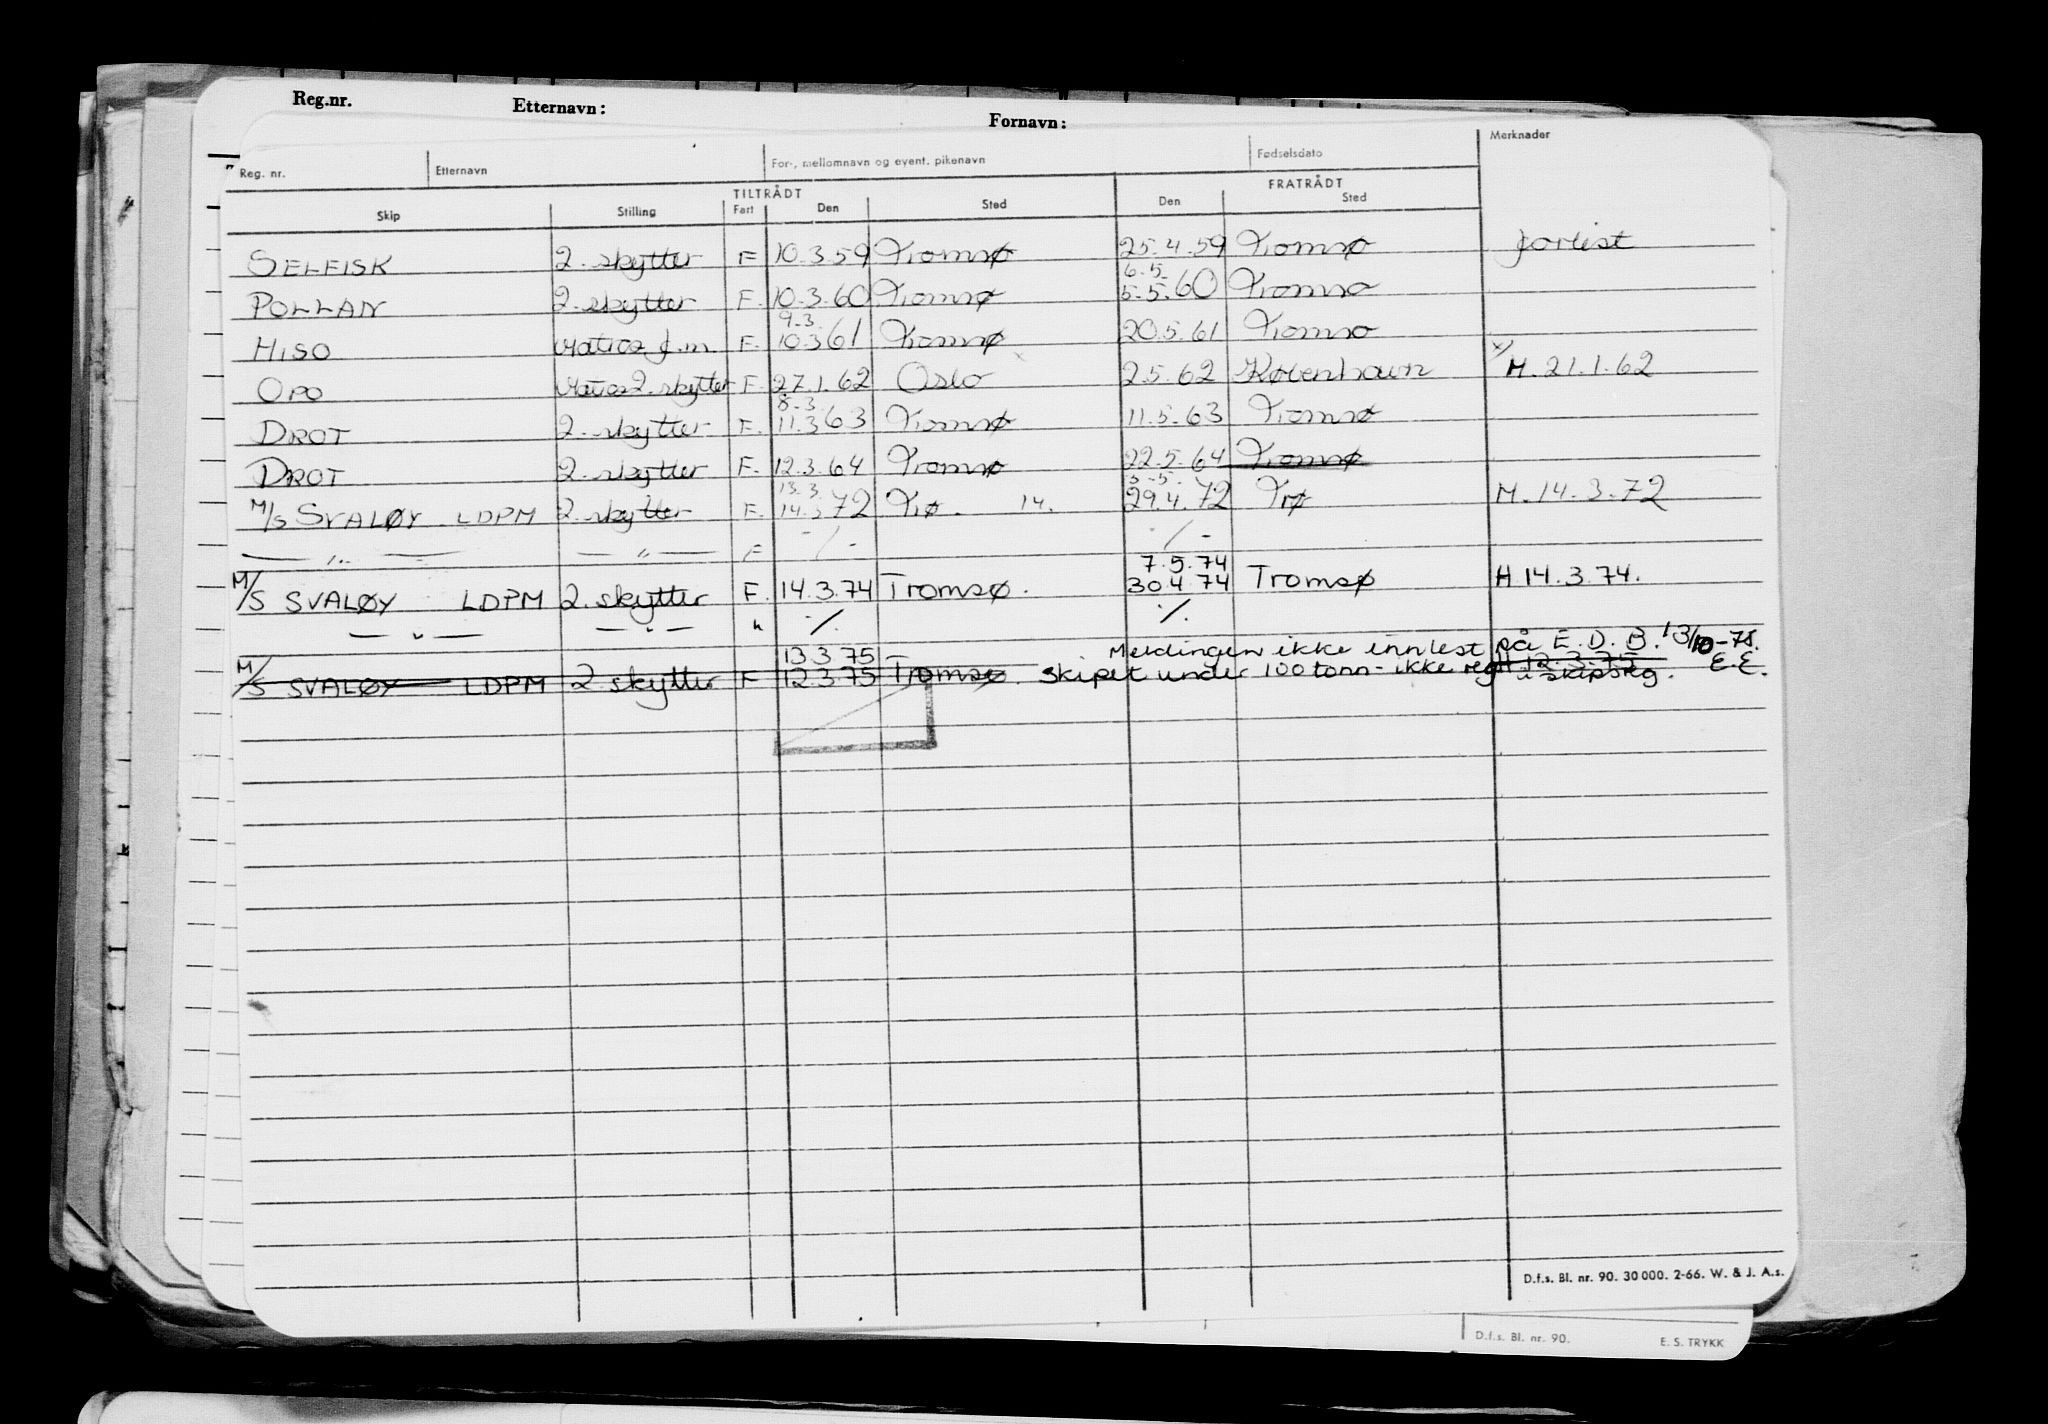 Reg.nr. Etternavn: Fornavn:
Reg. nr. Etternavn For-, mellomnavn og event. pikenavn Fødselsdato Merknader
TILTRÅDT FRATRÅDT
Skip Stilling Fart Den Sted Den Sted
SELFISK 2. skytter F 10.3.59 Tromsø 25.4.59 Tromsø forlist
6.5.
POLLAN 2. skytter F. 10.3.60 Tromsø 5.5.60 Tromsø
9.3.
HISO matros f.m. F. 10.3 61 Tromsø 20.5.61 Tromsø
OPO matros 2. skytter F. 27.1.62 Oslo x 2.5.62 København x/ M. 21.1.62
8.3.
DROT 2. skytter F. 11.3 63 Tromsø 11.5.63 Tromsø
DROT 2. skytter F. 12.3.64 Tromsø 22.5.64 Tromsø
13.3. 3.5.
M/S SVALØY LDPM 2. skytter F. 14.3 72 Trø. 14. 29.4.72 Trø M. 14.3.72
— " — — " — F - / - - / -
7.5.74
M/S SVALØY LDPM 2. skytter F. 14.3.74 Tromsø. 30.4.74 Tromsø H 14.3.74.
— " — — " — " ·/. ·/.
13.3.75 Meldingen ikke innlest på E.D.B. 13/10-75.
M/S SVALØY LDPM 2 skytter F 12.3.75 Tromsø. Skipet under 100 tonn - ikke reg i skipsreg. E.E.
12.3.75
D.f.s. Bl. nr. 90. 30 000. 2-66. W. & J. A.s.
D.f.s. Bl. nr. 90. E. S. TRYKK